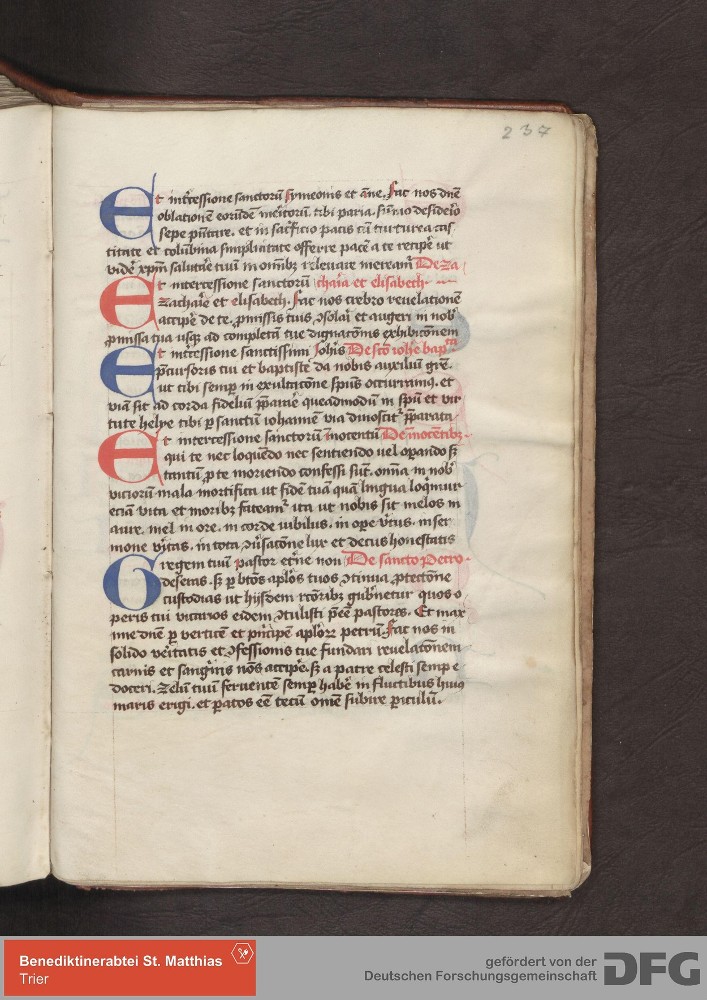 237
Et int̄cessione sanctorū symeonis et āne. fac nos dn̄e
oblationē eorūdē meritorū. tibi paria. sūmo desiderio
sepe p̄ntare. et in sac̄ficio pacis cū turturea cas
titate et columbina simplicitate offerre pacē a te recipe ut
vide xp̄m salutare tuū in omībꝫ releuare mereamr̄ De za
Et intercessione sanctorū charia et elisabeth.
Zacharie et elisabeth. fac nos crebro reuelationē
accipe de te. ꝓmissis tuis ꝯsolari et augeri in nobis
ꝓmissa tua usqꝫ ad completā tue dignatōnis exhibitōnem
Et int̄cessione sanctissimi Joh̄is De scō ioh̄e bapta
p̄cursoris tui et baptiste da nobis auxiliū grē.
ut tibi semꝑ in exultatōne sp̄us occurramꝰ. et
viā sic ad corda fideliū p̄parare queadmodū in sp̄u et vir
tute helye tibi ꝑ sanctū iohannē via dinoscit p̄parata
Et intercessione sanctorū īnocentū De īnocētibꝫ
qui te nec loquēdo nec sentiendo uel oꝑando sꝫ
tantū ꝓ te moriendo confessi sūt. om̄ia in nobis
viciorū mala mortifica ut fidē tuā quā lingua loqmur
eciā vita et moribꝫ fateamr̄ ita ut nobis sit melos in
aure. mel in ore. in corde iubilus. in oꝑe v̄tus. in ser
mone v̄itas. in tota ꝯūsatōne lux et decus honestatis
Gregem tuū pastor et̄ne non De sancto Petro
deseras. sꝫ ꝑ bt̄os apl̄os tuos ꝯtinua ꝓtectōne
custodias ut hijsdem rc̄oribꝫ gub̄netur quos o
peris tui vicarios eidem ꝯtulisti p̄ee pastores. Et max
ime dn̄e ꝑ verticē et p̄ncipem apl̄orꝝ petrū. Fac nos in
solido veritatis et ꝯfessionis tue fundari reuelatōnem
carnis et sanguinis nōs accipe. sꝫ a patre celesti sempe
doceri. Zelū tuū feruentē semꝑ habē in fluctibus huiꝰ
maris erigi. et ꝑatos eē tecū omē subire ꝑiculū.
Benediktinerabtei St. Matthias
Trier
gefördert von der
Deutschen Forschungsgemeinschaft
DFG